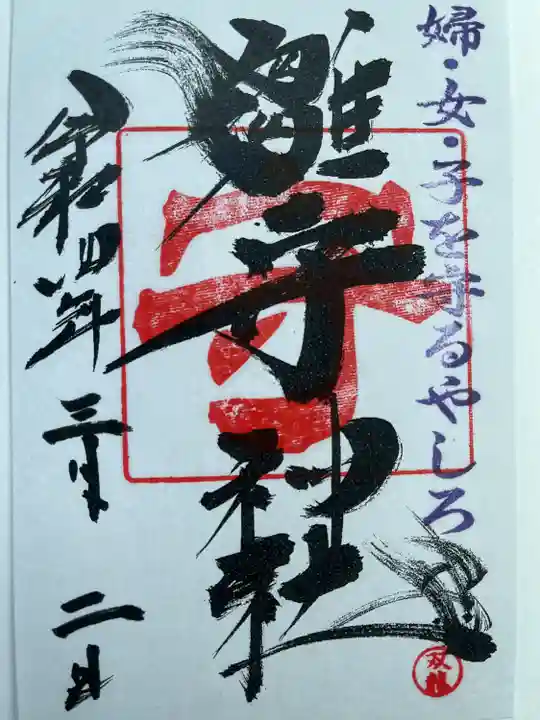 婦・女・子を るやしろ
雛守神社
守
令和四年 三月 二日
双